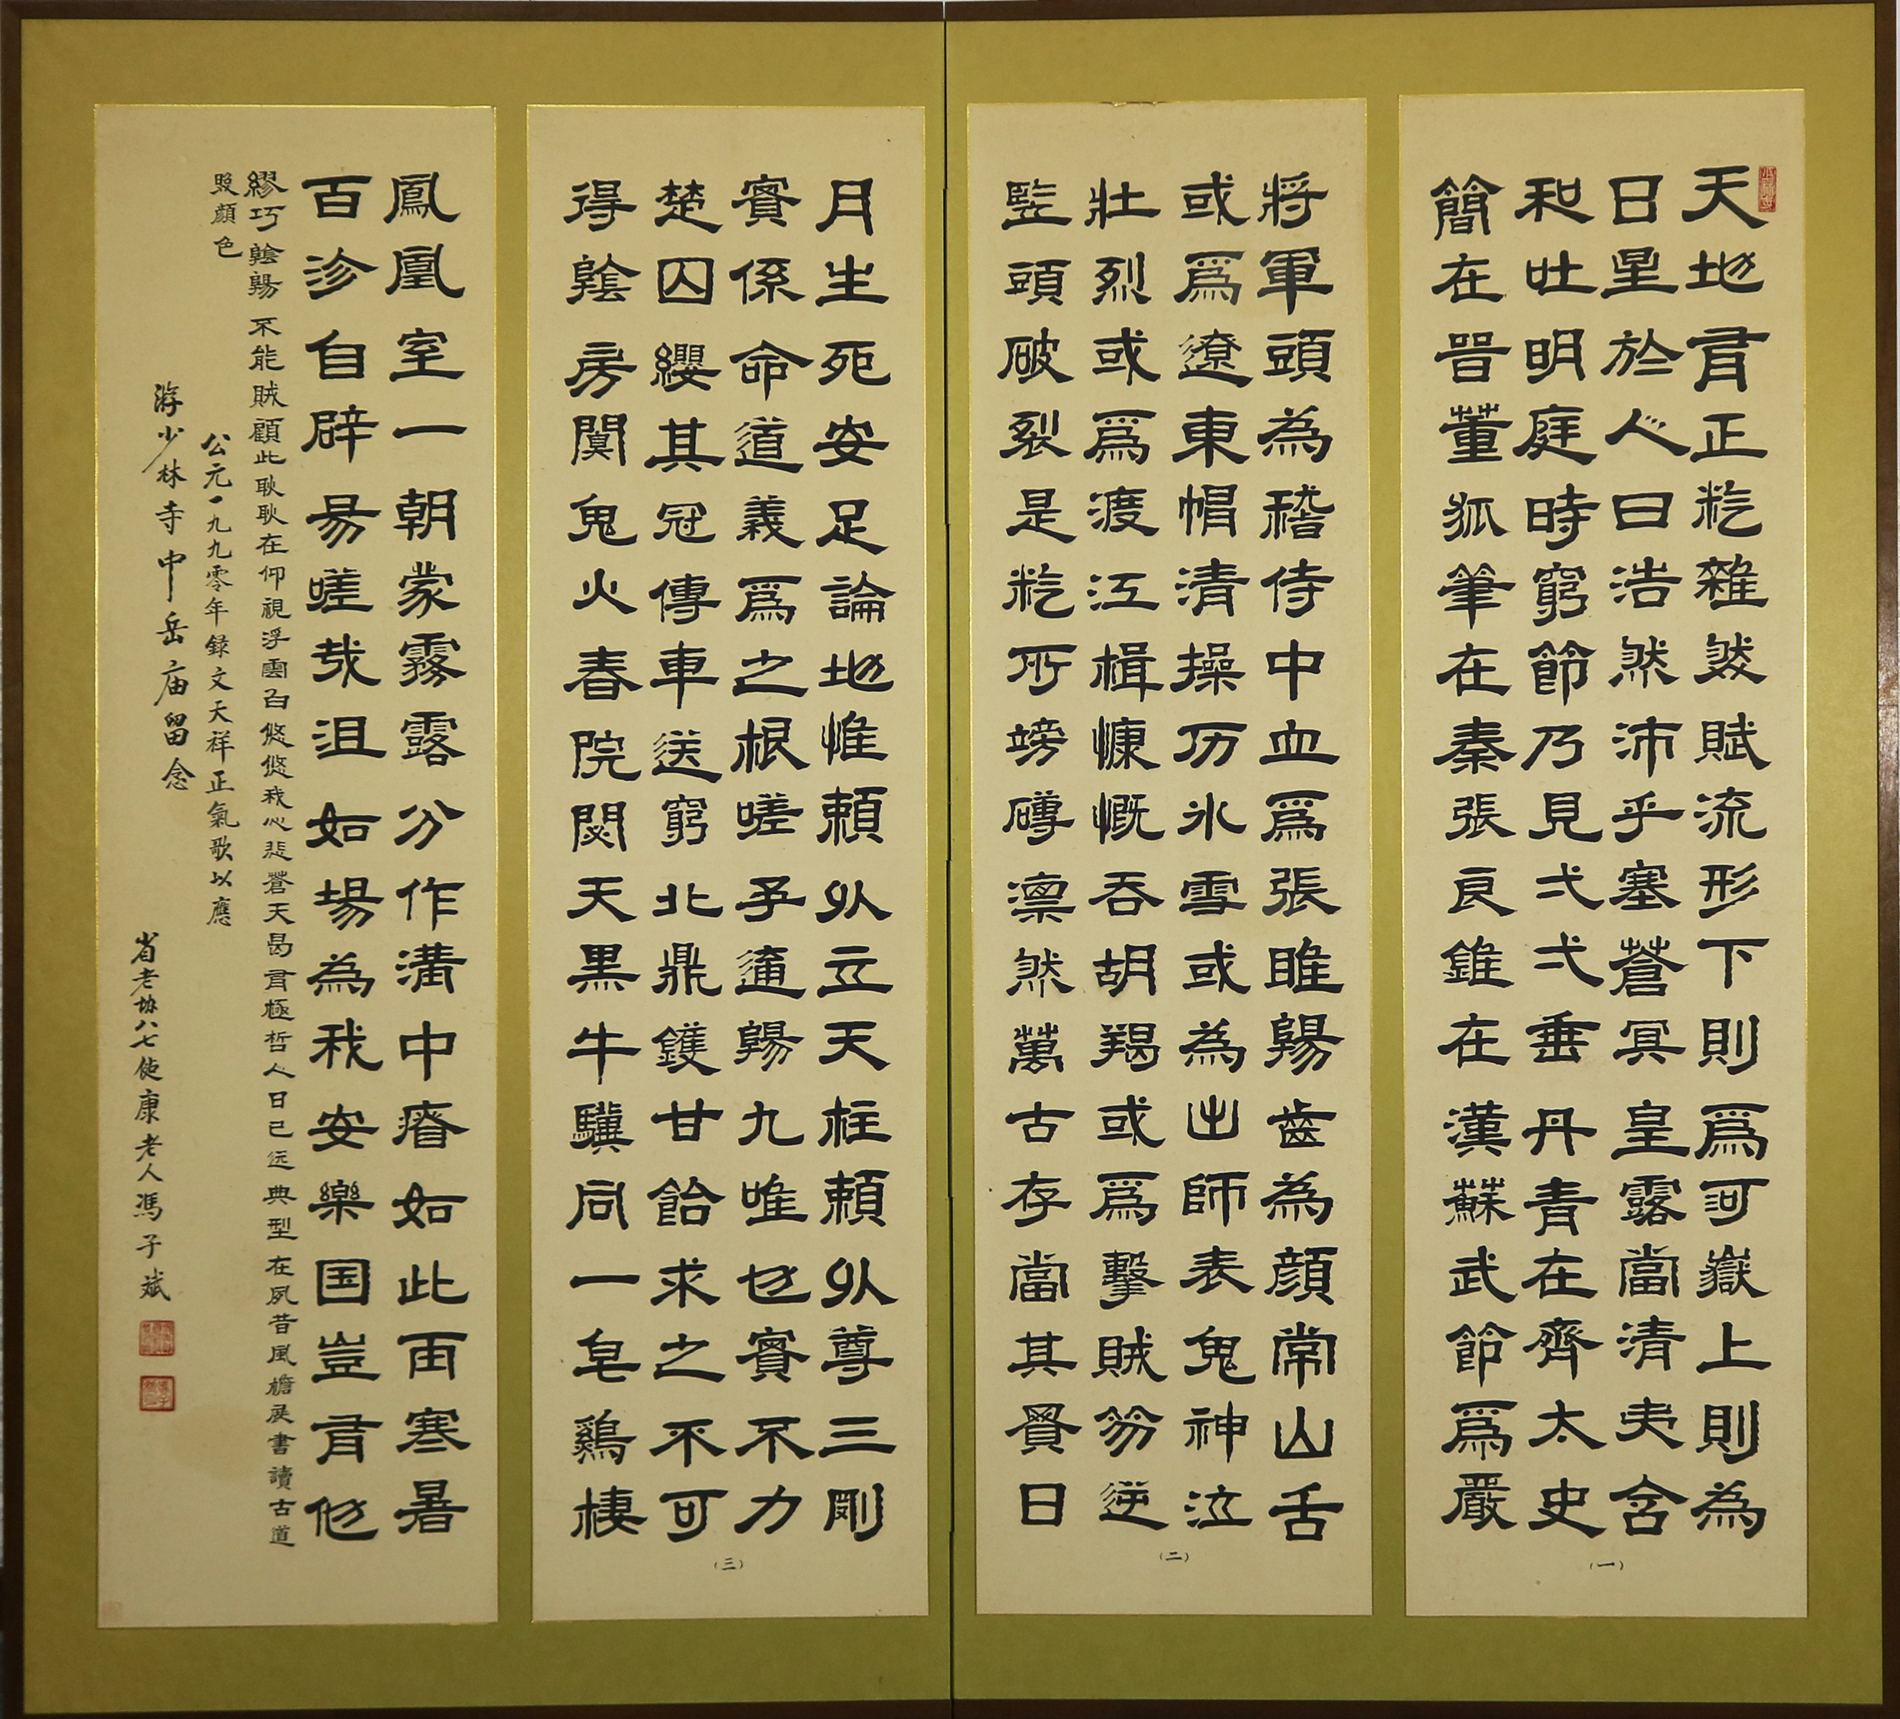 天地有正氣雜然賦流形下則爲河嶽上則為
日星於人曰浩然沛乎塞蒼冥皇露當清夷含
和吐明庭時窮節乃見弌弌垂丹青在齊太史
簡在晉董狐筆在秦張良錐在漢蘇武節爲嚴
（一）
將軍頭為稽侍中血爲張睢陽齒為顏常山舌
或爲遼東帽清操厉冰雪或為出師表鬼神泣
壯烈或爲渡江楫慷慨吞胡羯或爲擊賊笏逆
豎頭破裂是氣所塝礴凜然萬古存當其貫日
（二）
月生死安足論地惟賴以立天柱賴以尊三剛
實係命道義爲之根嗟予遘陽九唯也實不力
楚囚纓其冠傳車送窮北鼎鑊甘飴求之不可
得陰房闃鬼火春院閟天黑牛驥同一皂鷄棲
（三）
鳳凰室一朝蒙霧露分作溝中瘠如此再寒暑
百沴自辟易嗟哉沮如場為我安樂国豈有他
繆巧陰陽不能賊顧此耿耿在仰視浮雲白悠悠我心悲蒼天曷有極哲人日已远典型在夙昔風檐展書讀古道
照顏色
公元一九九零年録文天祥正氣歌以應
游少林寺中岳庙留念
省老协八七健康老人馮子斌